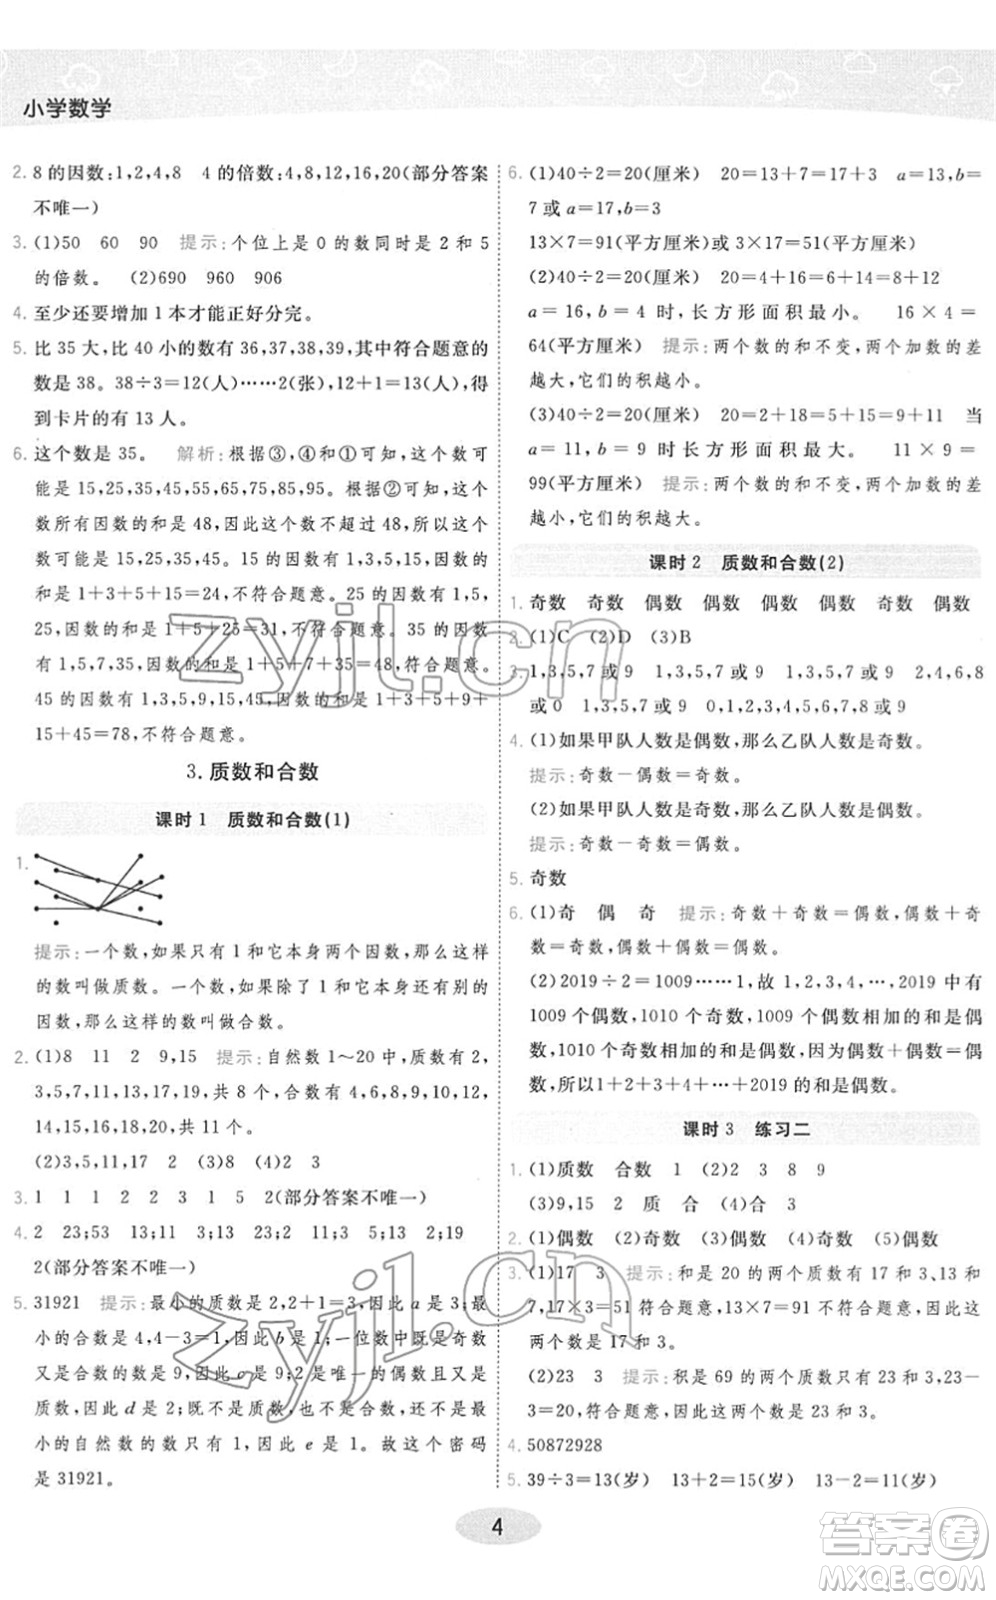 小学数学
2. 8的因数:1,2,4,8 4的倍数:4,8,12,16,20(部分答案
不唯一)
3. (1)50 60 90 提示:个位上是0的数同时是2和5
的倍数。 (2)690 960 906
4. 至少还要增加1本才能正好分完。
5. 比35大,比40小的数有36,37,38,39,其中符合题意的
数是38。38÷3=12(人)……2(张),12+1=13(人),得
到卡片的有13人。
6. 这个数是35。 解析:根据③,④和①可知,这个数可
能是15,25,35,45,55,65,75,85,95。根据②可知,这个
数所有因数的和是48,因此这个数不超过48,所以这个
数可能是15,25,35,45。15的因数有1,3,5,15,因数的
和是1+3+5+15=24,不符合题意。25的因数有1,5,
25,因数的和是1+5+25=31,不符合题意。35的因数
有1,5,7,35,因数的和是1+5+7+35=48,符合题意。
45的因数有1,3,5,9,15,45,因数的和是1+3+5+9+
15+45=78,不符合题意。
3.质数和合数
课时1 质数和合数(1)
1.
提示:一个数,如果只有1和它本身两个因数,那么这样
的数叫做质数。一个数,如果除了1和它本身还有别的
因数,那么这样的数叫做合数。
2. (1)8 11 2 9,15 提示:自然数1~20中,质数有2,
3,5,7,11,13,17,19,共8个,合数有4,6,8,9,10,12,
14,15,16,18,20,共11个。
(2)3,5,11,17 2 (3)8 (4)2 3
3. 1 1 1 2 3 1 5 2(部分答案不唯一)
4. 2 23;53 13;11 23;2 11;3 5;13 2;19
2(部分答案不唯一)
5. 31921 提示:最小的质数是2,2+1=3,因此a是3;最
小的合数是4,4-3=1,因此b是1;一位数中既是奇数
又是合数的数是9,因此c是9;2是唯一的偶数且是
质数,因此d是2;既不是质数,也不是合数的,且不是最
小的自然数的数只有1,因此e是1。故这个密码
是31921。
6. (1)40÷2=20(厘米) 20=13+7=17+3 a=13,b=
7或a=17,b=3
13×7=91(平方厘米)或3×17=51(平方厘米)
(2)40÷2=20(厘米) 20=4+16=6+14=8+12
a=16,b=4时,长方形面积最小。 16×4=
64(平方厘米) 提示:两个数的和不变,两个加数的差
越大,它们的积越小。
(3)40÷2=20(厘米) 20=2+18=5+15=9+11 当
a=11,b=9时长方形面积最大。 11×9=
99(平方厘米) 提示:两个数的和不变,两个加数的差
越小,它们的积越大。
课时2 质数和合数(2)
1. 奇数 奇数 偶数 偶数 偶数 偶数 奇数 偶数
2. (1)C (2)D (3)B
3. 1,3,5,7或9 1,3,5,7或9 1,3,5,7或9 2,4,6,8
或0 1,3,5,7或9 0,1,2,3,4,5,6,7,8或9
4. (1)如果甲队人数是偶数,那么乙队人数是奇数。
提示:奇数-偶数=奇数。
(2)如果甲队人数是奇数,那么乙队人数是偶数。
提示:奇数-奇数=偶数。
5. 奇数
6. (1)奇 偶 奇 提示:奇数+奇数=偶数,偶数+奇
数=奇数,偶数+偶数=偶数。
(2)2019÷2=1009……1,故1,2,3,4,…,2019中有
1009个偶数,1010个奇数,1009个偶数相加的和是偶
数,1010个奇数相加的和是偶数,因为偶数+偶数=偶
数,所以1+2+3+4+…+2019的和是偶数。
课时3 练习二
1. (1)质数 合数 1 (2)2 3 8 9
(3)9,15 2 质 合 (4)合 3
2. (1)偶数 (2)奇数 (3)奇数 (4)偶数 (5)偶数
3. (1)17 3 提示:和是20的两个质数有17和3、13和
7,17×3=51符合题意,13×7=91不符合题意,因此这
两个数是17和3。
(2)23 3 提示:积是69的两个质数只有23和3,23-
3=20,符合题意,因此这两个数是23和3。
4. 50872928
5. 39÷3=13(岁) 13+2=15(岁) 13-2=11(岁)
4
zyjl.cn
zyjl.cn
答案圈
MXQE.COM